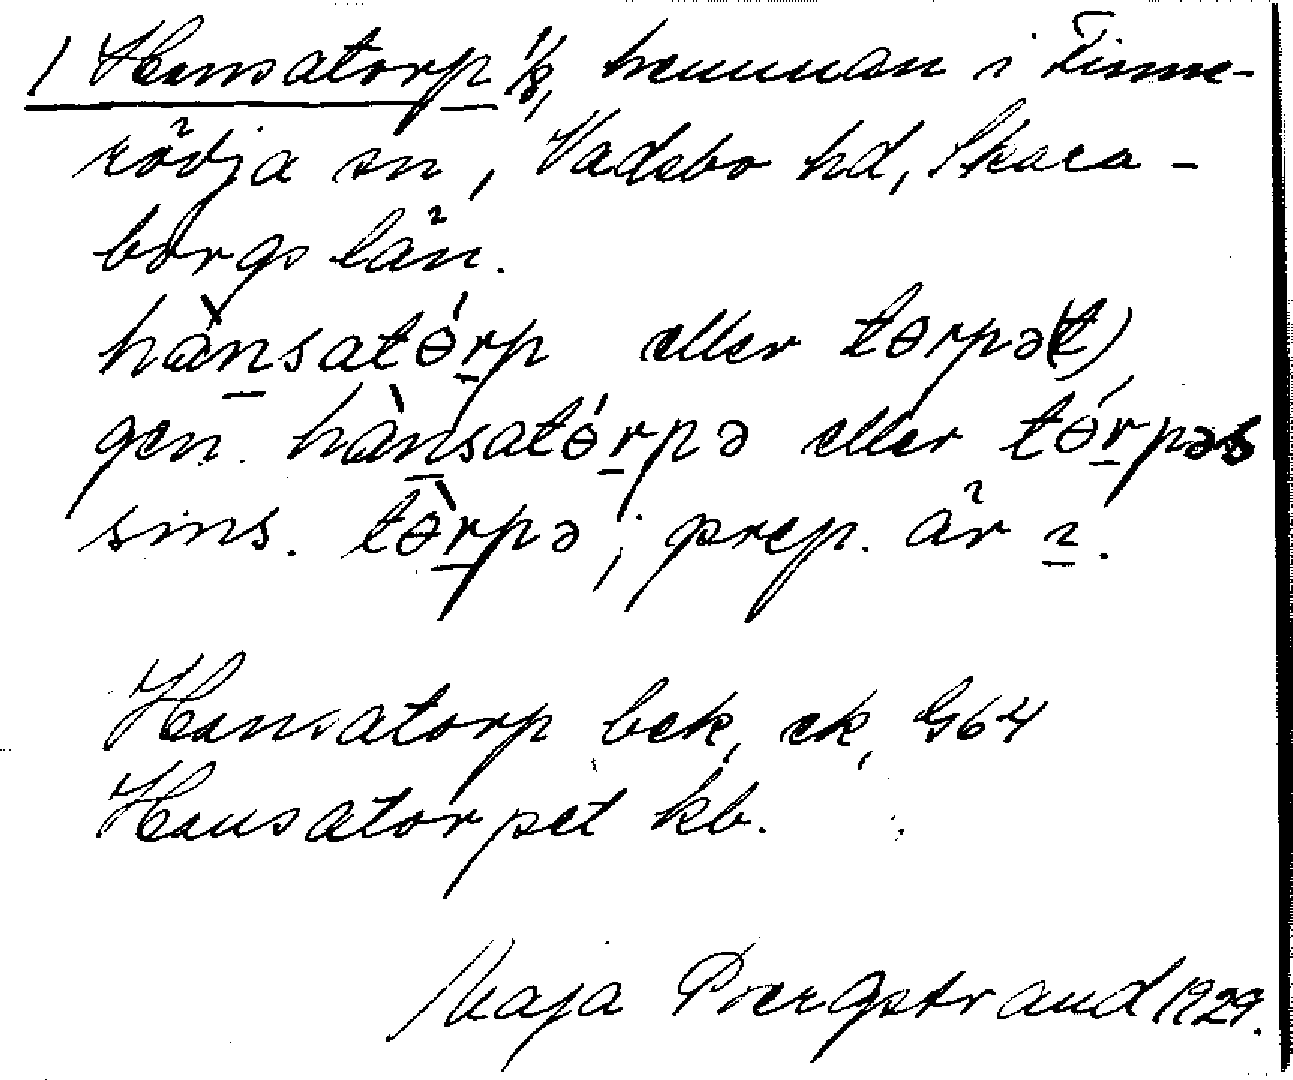 1 Hansatorp 1/8, hemman i Finne-
rödja sn, Vadsbo hd, Skara-
borgs län.
hànsatɵ́rp eller tɵrpə(t)
gen. hànsatɵ́rpə eller tɵ́rpəs
sms. tɵ̀rpə; prep. är ɩ.
Hansatorp bek, ek, G64
Hansatorpet kb.
Maja Bergstrand 1929.